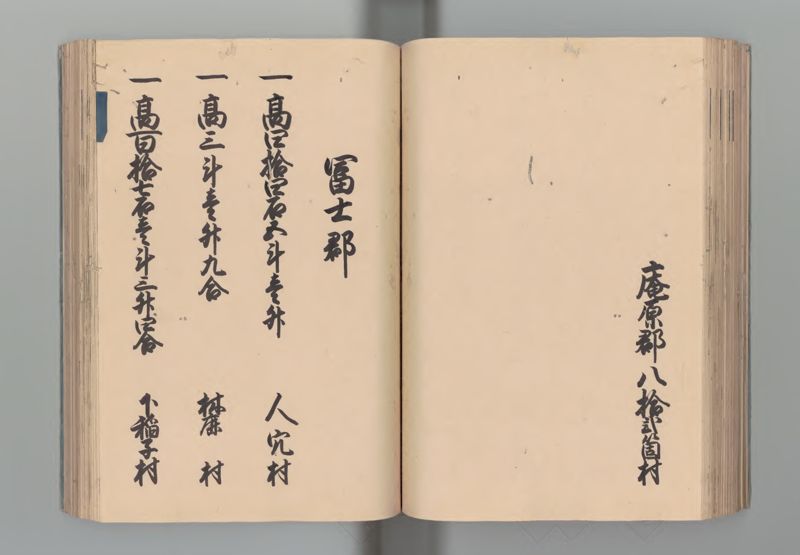 庵原郡八拾弐箇村
冨士郡
一高四拾四石五斗壱升 人穴村
一高三斗壱升九合 村
一高百拾七石壱斗三升四合 下稲子村